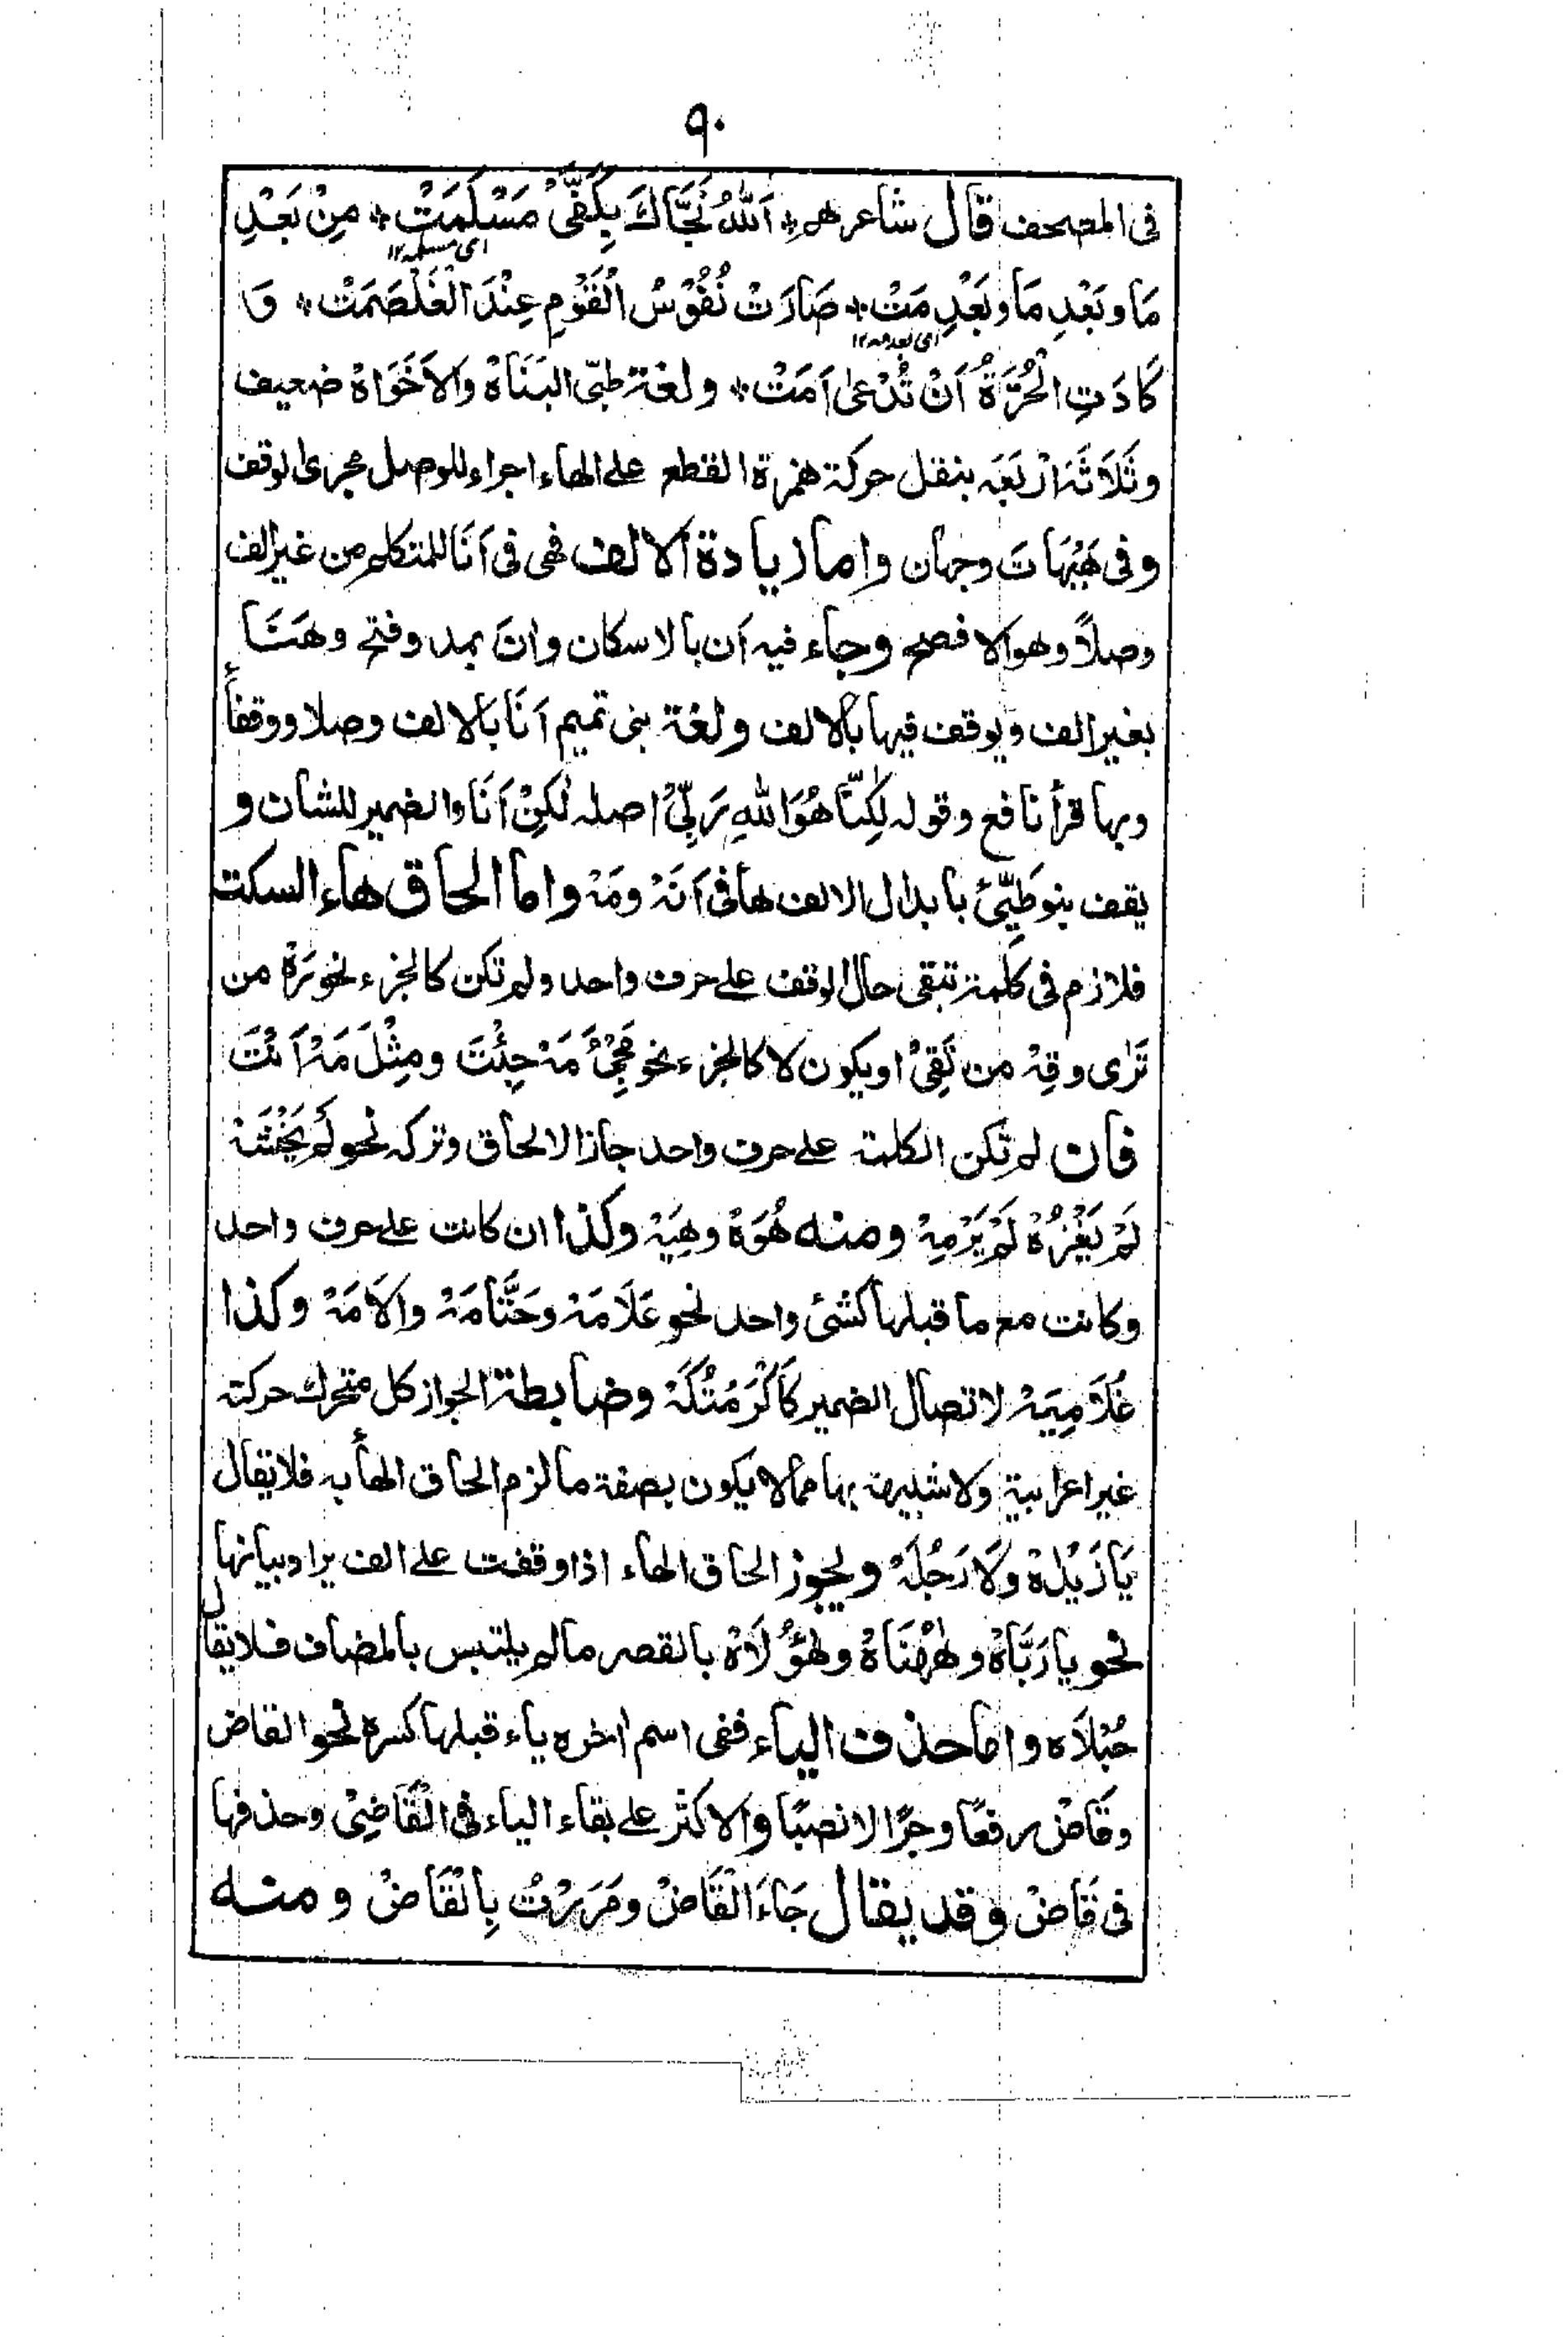 ٩٠
فی المصحف قال شاعرهم * اَللّٰهُ نَجَّاكَ بِكَفَّیْ مَسْلَمَتْ * مِنْ بَعْدِ
ای مسلمه ١٢
مَا وبَعْدِ مَا وبَعْدِ مَتْ * صَارَتْ نُفُوْسُ الْقَوْمِ عِنْدَ الْغَلْصَمَتْ * وَ
ای بعد مه ١٢
كَادَتِ الْحُرَّةُ اَنْ تُدْعٰی اَمَتْ * ولغة طیّ البَنَاهْ والاَخَوَاهْ ضعیف
وثَلَاثَهَ ارْبَعَه بنقل حرکة همزة القطع علی الهاء اجراء للوصل مجری الوقف
وفی هَیْهَاتَ وجهان واما زیادة الالف فهی فی اَنَا للمتکلم من غیر الف
وصلاً وهو الافصح وجاء فیه اَن بالاسکان واٰنَ بمد وفتح وهَنَا
بغیر الف ویوقف فیها بالالف ولغة بنی تمیم اَنَا بالالف وصلا ووقفاً
وبها قرأ نافع وقوله لٰكِنَّا هُوَ اللّٰهِ رَبِّیْ اصله لٰكِنْ اَنَا والضمیر للشان و
یقف بنو طَیِّیْ بابدال الالف هاً فی اَنَهْ ومَهْ واما الحاق هاء السکت
فلازم فی کلمة تبقی حال الوقف علی حرف واحد ولم تکن کالجزء نحو رَهْ من
تَرٰی وقِهْ من تَقِیْ او یکون لا کالجزء نحو مَجِیْءَ مَهْ جِئْتَ ومِثْلَ مَهْ اَنْتَ
فان لم تکن الکلمة علی حرف واحد جاز الالحاق وترکه نحو لَمْ یَخْشَهْ
لَمْ یَغْزُهْ لَمْ یَرْمِهْ ومنه هُوَهْ وهِیَهْ وکذا ان کانت علی حرف واحد
وکانت مع ما قبلها کشئ واحد نحو عَلَامَهْ وحَتَّامَهْ والاَمَهْ وکذا
غُلَامِیَهْ لاتصال الضمیر کَاَكْرَمْتُكَهْ وضابطة الجواز کل متحرك حرکته
غیر اعرابیة ولا شبیهة بها مما لا یکون بصفة ما لزم الحاق الهأ به فلا یقال
یَا زَیْدُهْ ولَا رَجُلَهْ ویجوز الحاق الهاء اذا وقفت علی الف یراد بیانها
نحو یا رَبَّاهْ وهٰهُنَاهْ وهٰؤُلَاهْ بالقصر ما لم یلتبس بالمضاف فلا یقال
حُبْلَاه واما حذف الیاء ففی اسم اٰخره یاء قبلها کسرة نحو القاض
وقَاضْ رفعًا وجرًا لا نصبًا والاکثر علی بقاء الیاء فی الْقَاضِیْ وحذفها
فی قَاضْ وقد یقال جَاءَ الْقَاضْ ومَرَرْتُ بِالْقَاضْ ومنه